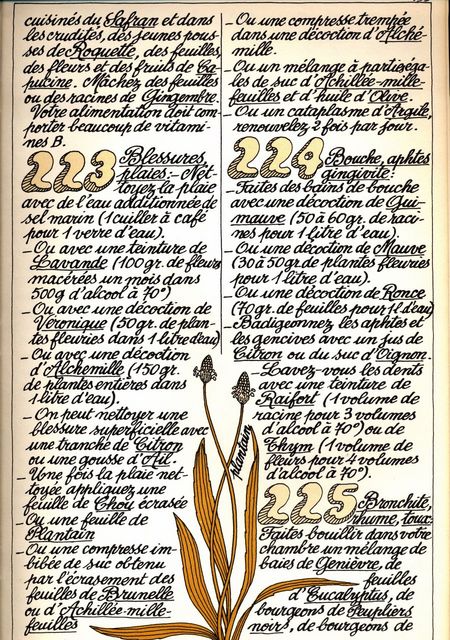 cuisinés du Safran et dans
les crudités, des jeunes pous-
ses de Roquette, des feuilles,
des fleurs et des fruits de Ca-
pucine. Mâchez des feuilles
ou des racines de Gingembre.
Votre alimentation doit com-
porter beaucoup de vitami-
nes B.
223 Blessures,
plaies:_Net-
toyez la plaie
avec de l'eau additionnée de
sel marin (1 cuiller à café
pour 1 verre d'eau).
_Ou avec une teinture de
Lavande (100 gr. de fleurs
macérées un mois dans
500 g d'alcool à 70°)
_Ou avec une décoction de
Véronique (50 gr. de plan-
tes fleuries dans 1 litre d'eau)
_Ou avec une décoction
d'Alchemille (150 gr.
de plantes entières dans
1 litre d'eau).
_On peut nettoyer une
blessure superficielle avec
une tranche de Citron
ou une gousse d'Ail.
_Une fois la plaie net-
toyée appliquez une
feuille de Chou écrasée
_Ou une feuille de
Plantain
_Ou une compresse im-
bibée de suc obtenu
par l'écrasement des
feuilles de Brunelle
ou d'Achillée-mille-
feuilles
_Ou une compresse trempée
dans une décoction d'Alché-
mille.
_Ou un mélange à parties éga-
les de suc d'Achillée-mille-
feuilles et d'huile d'Olive.
_Ou un cataplasme d'Argile,
renouvelez 2 fois par jour.
224 Bouche, aphtes
gingivite:
_Faites des bains de bouche
avec une décoction de Gui-
mauve (50 à 60 gr. de raci-
nes pour 1 litre d'eau).
_Ou une décoction de Mauve
(30 à 50 gr. de plantes fleuries
pour 1 litre d'eau).
_Ou une décoction de Ronce
(40 gr. de feuilles pour 1 l d'eau)
_Badigeonnez les aphtes et
les gencives avec un jus de
Citron ou du suc d'Oignon.
_Lavez-vous les dents
avec une teinture de
Raifort (1 volume de
racine pour 3 volumes
d'alcool à 70°) ou de
Thym (1 volume de
fleurs pour 4 volumes
d'alcool à 70°).
plantain
225 Bronchite,
rhume, toux:
Faites bouillir dans votre
chambre un mélange de
baies de Genièvre, de
feuilles
d'Eucalyptus, de
bourgeons de Peupliers
noirs, de bourgeons de